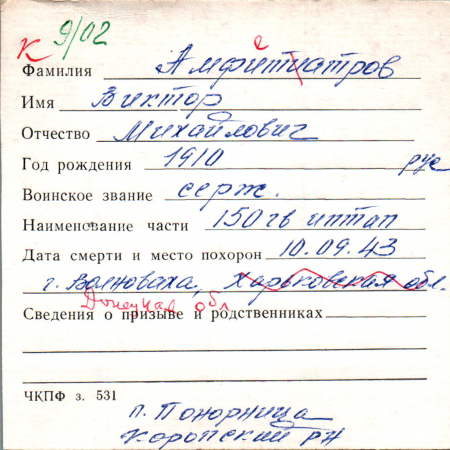 К 9/02
Фамилия Амфитиатров
е
Имя Виктор
Отчество Михайлович
Год рождения 1910 рус
Воинское звание серж.
Наименование части 150 гв иптап
Дата смерти и место похорон 10.09.43
г. Волноваха, Харьковская обл.
Донецкая обл
Сведения о призыве и родственниках
ЧКПФ з. 531
п. Понорница
Коропский рн